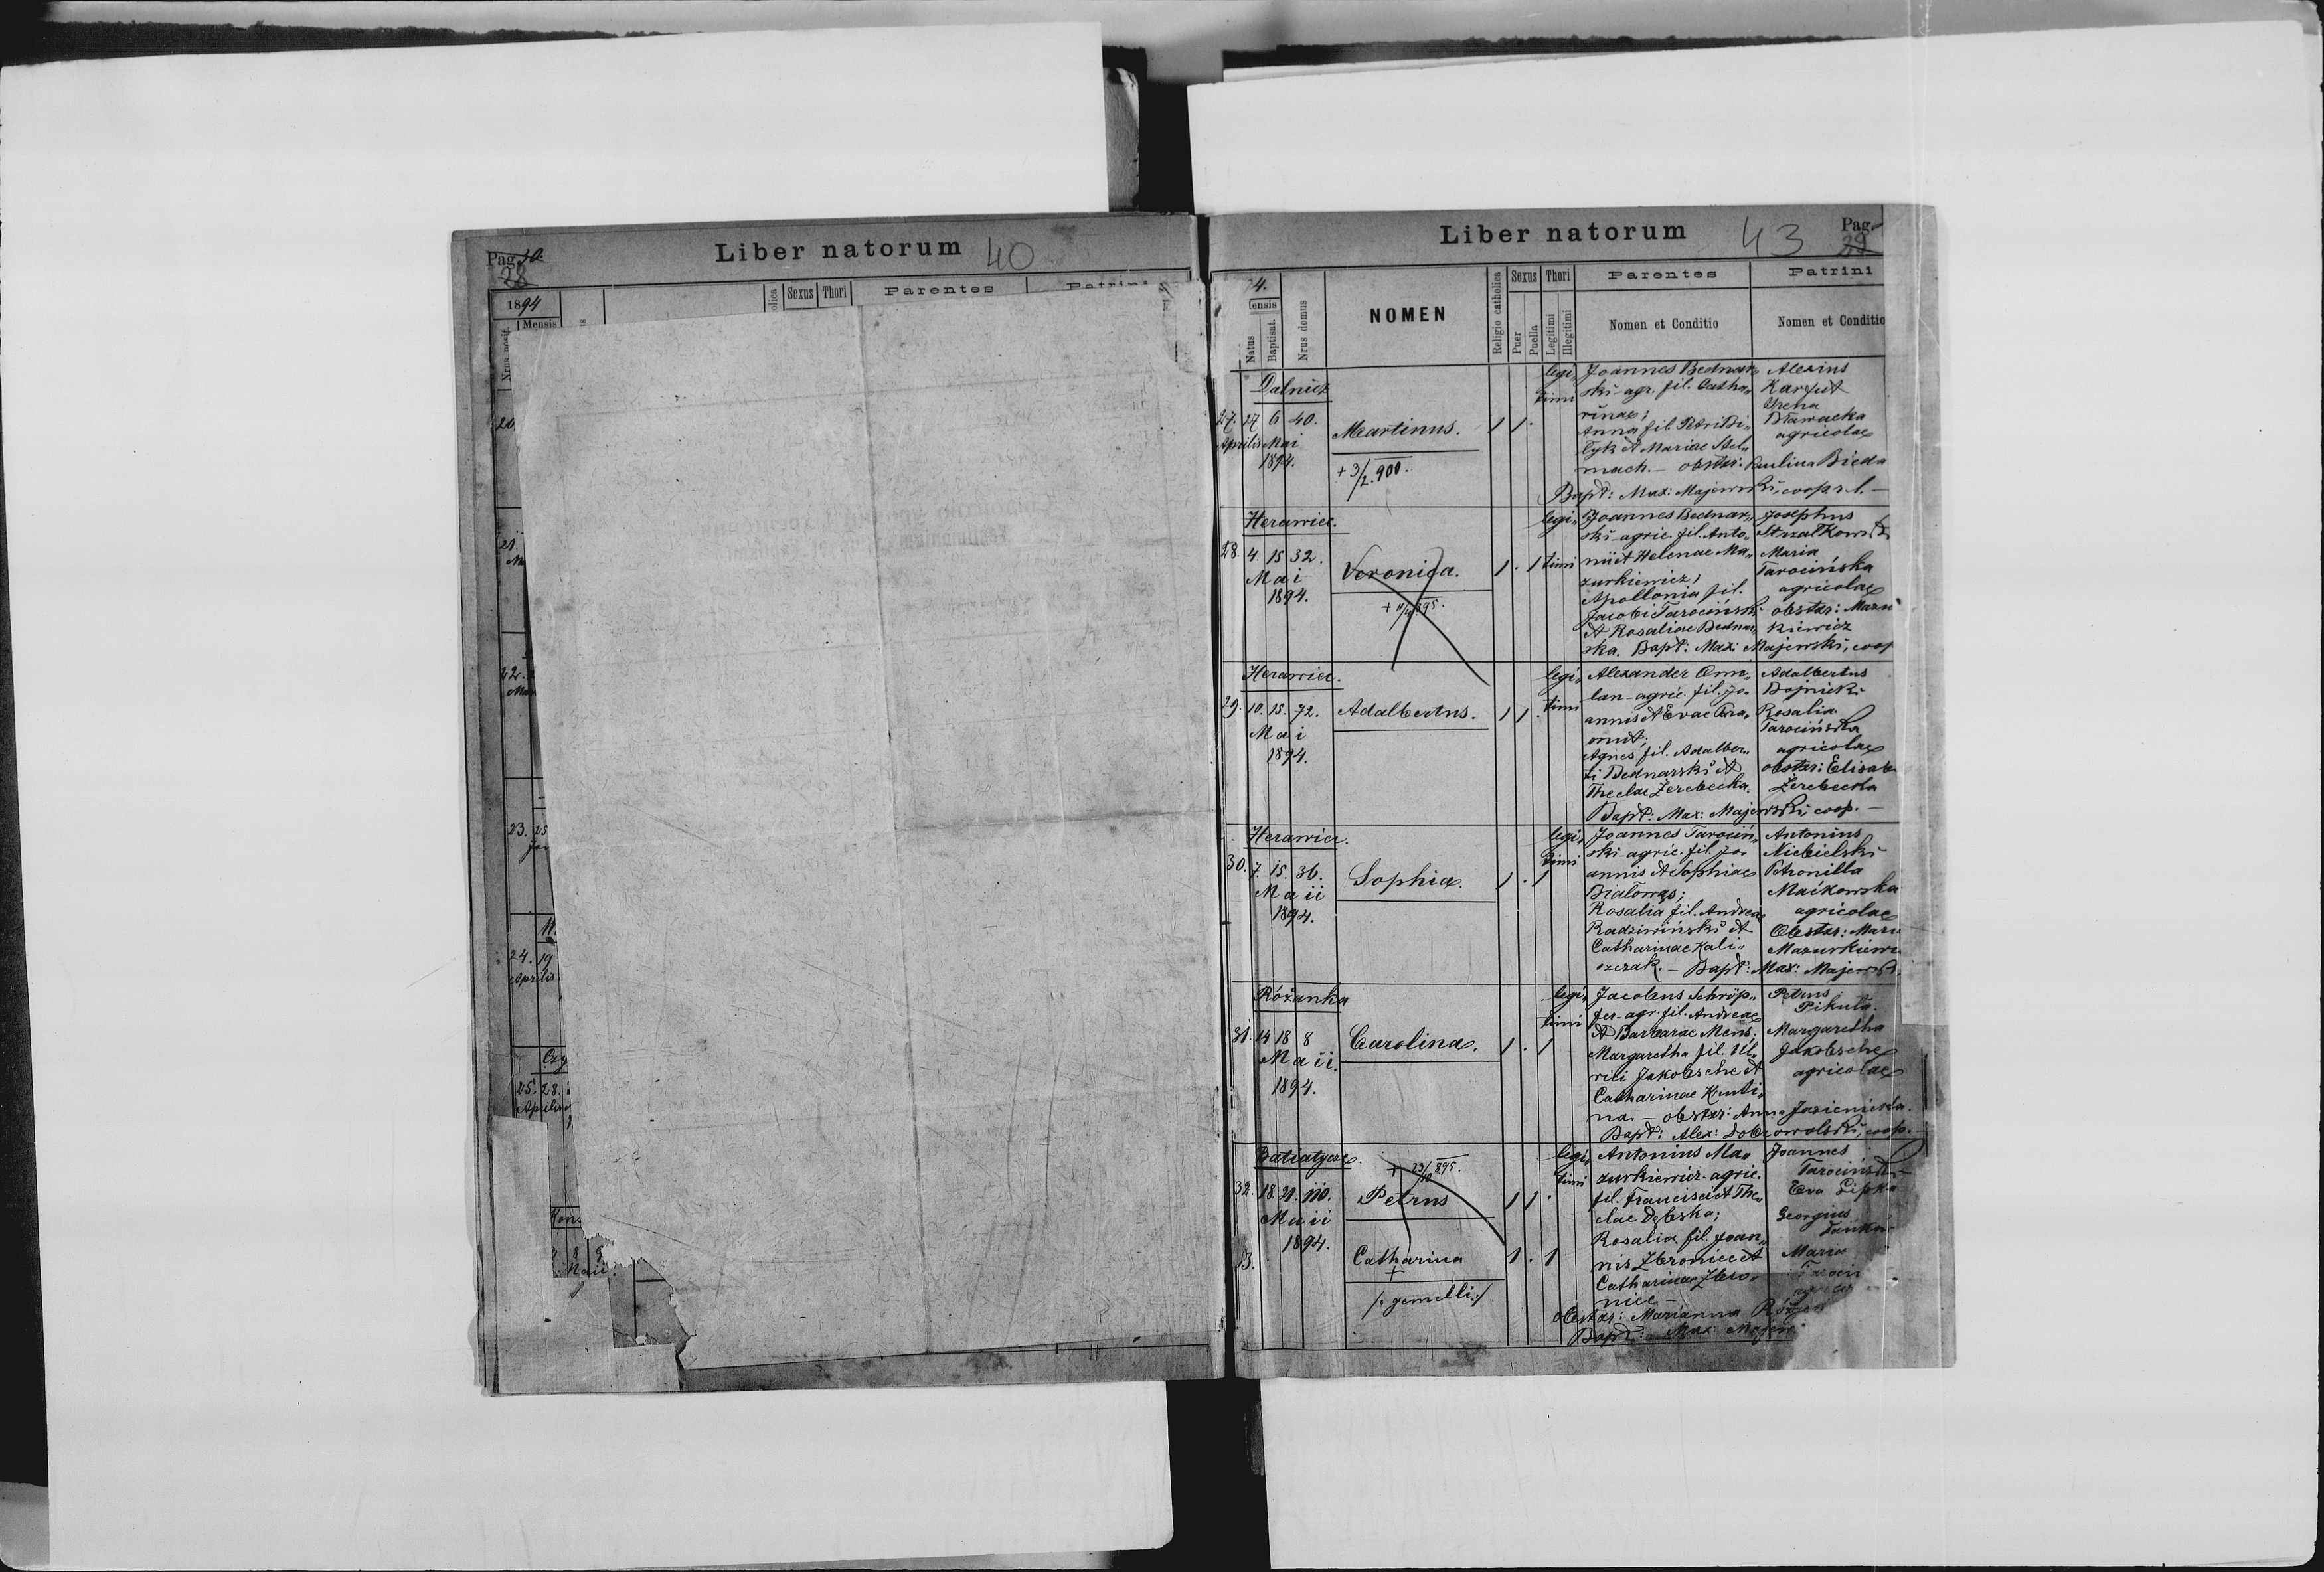 Pag 40.
28
Liber natorum 40
1894
Mensis
Sexus Thori Parentes
20.
21.
22.
23. 25
24. 19
Aprilis
25. 28.
Aprilis
8 9
Maii.
Liber natorum 43 Pag.
29
4.
ensis
Natus
Baptisat.
Nrus domus
NOMEN
Religio catholica
Sexus
Puer
Puella
Thori
Legitimi
Illegitimi
Parentes
Nomen et Conditio
Patrini
Nomen et Conditio
Dalnicz
27. 27 6 40.
Aprilis Mai
1894.
Martinus.
+ 3/2.900.
1 1.
legi„
timi
Joannes Bednar„
ski agr. fil. Catha„
rinae;
Anna fil. Petri Bi„
łyk et Mariae Stel„
mach. – obstr: Paulina Bieda
Bapt: Max: Majewski, coop. r. l. –
Alexius
Karfut
Irena
Bławacka
agricolae
Herawiec.
28. 4. 15 32.
Mai
1894.
Veronica.
+ 11/6 895.
1 . 1
legi„
timi
Joannes Bednar„
ski agric. fil. Anto„
nii et Helenae Ma„
zurkiewicz;
Apollonia fil.
Jacobi Tarociński
et Rosaliae Bednar„
ska. Bapt: Max: Majewski, coop
Josephus
Strzałkowski
Maria
Tarocińska
agricolae
obstr: Mazu
kiewicz
Herawiec.
29. 10. 15. 72.
Mai
1894.
Adalbertus.
1 1 .
legi„
timi
Alexander Omu„
lan agric. fil. Jo„
annis et Evae
Agnes fil. Adalber„
ti Bednarski et
Theclae Żerebecka.
Bapt: Max: Majewski, coop. –
Adalbertus
Bojnicki
Rosalia
Tarocińska
agricolae
obstr: Elisabe
Żerebecka
Herawiec.
30. 7. 15. 36.
Maii
1894.
Sophia.
1 . 1
legi„
timi
Joannes Tarociń„
ski agric. fil. Jo„
annis et Sophiae
Białowąs;
Rosalia fil. Andreae
Radziwiński et
Catharinae Kali„
szczak. – Bapt: Max: Majewski,
Antonius
Niebielski
Petronilla
Maćkowska
agricolae
Obstr: Mari
Mazurkiewi
Różanka
31. 14 18 8
Maii.
1894.
Carolina.
1 . 1
legi„
timi
Jacobus Schröp„
fer agr. fil. Andreae
et Barbarae Mens;
Margaretha fil. Ul„
rici Jakobsche et
Catharinae Kunti„
na. – obstr: Anna Jasienicka.
Bapt: Alex: Dobrowolski, coop.
Petrus
Pikuła.
Margaretha
Jakobsche
agricolae
Batiatycze.
32. 18. 21. 110.
Maii
1894.
+ 23/12 895.
Petrus
1 1 .
3.
Catharina
+
/: gemelli :/
1 . 1
legi„
timi
Antonius Ma„
zurkiewicz agric.
fil. Francisci et The„
clae Dębska;
Rosalia fil. Joan„
nis Zbroniec et
Catharinae Zbro„
niec –
obstr: Marianna
Bapt: Max: Majew
Joannes
Tarociński
Eva Lipka
Georgius
Maria
Tarociń